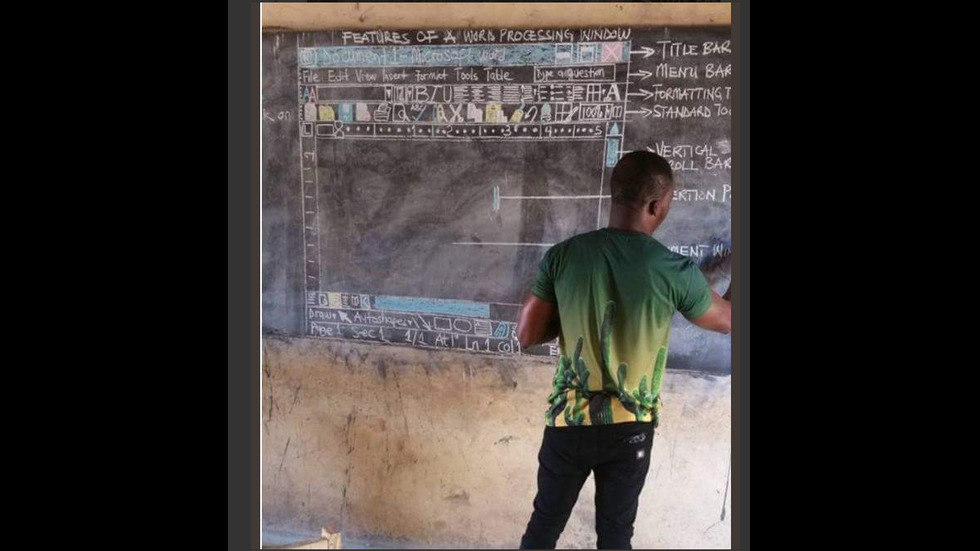 FEATURES OF A WORD PROCESSING WINDOW
Document 1 - Microsoft Word
TITLE BAR
File Edit View Insert Format Tools Table
Type a question
MENU BAR
B I U
A
FORMATTING T
100%
STANDARD TO
k on
1 2 3 4 5
VERTICAL
ROLL BAR
ERTION P
MENT WIN
Draw Autoshapes
Page 1 Sec 1 1/1 At 1" Ln 1 Col 1